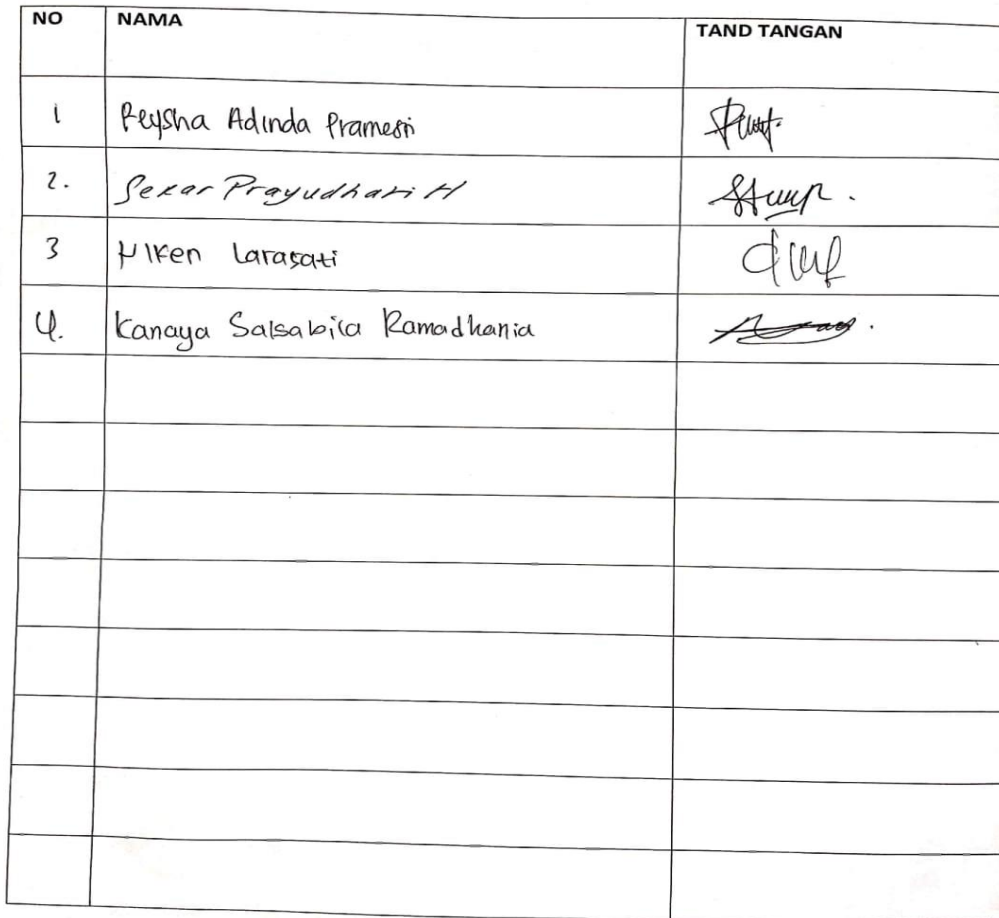 NO NAMA TAND TANGAN
1 Reysha Adinda Pramesti
2. Sekar Prayudhari H
3 Niken Larasati
4. Kanaya Salsabila Ramadhania